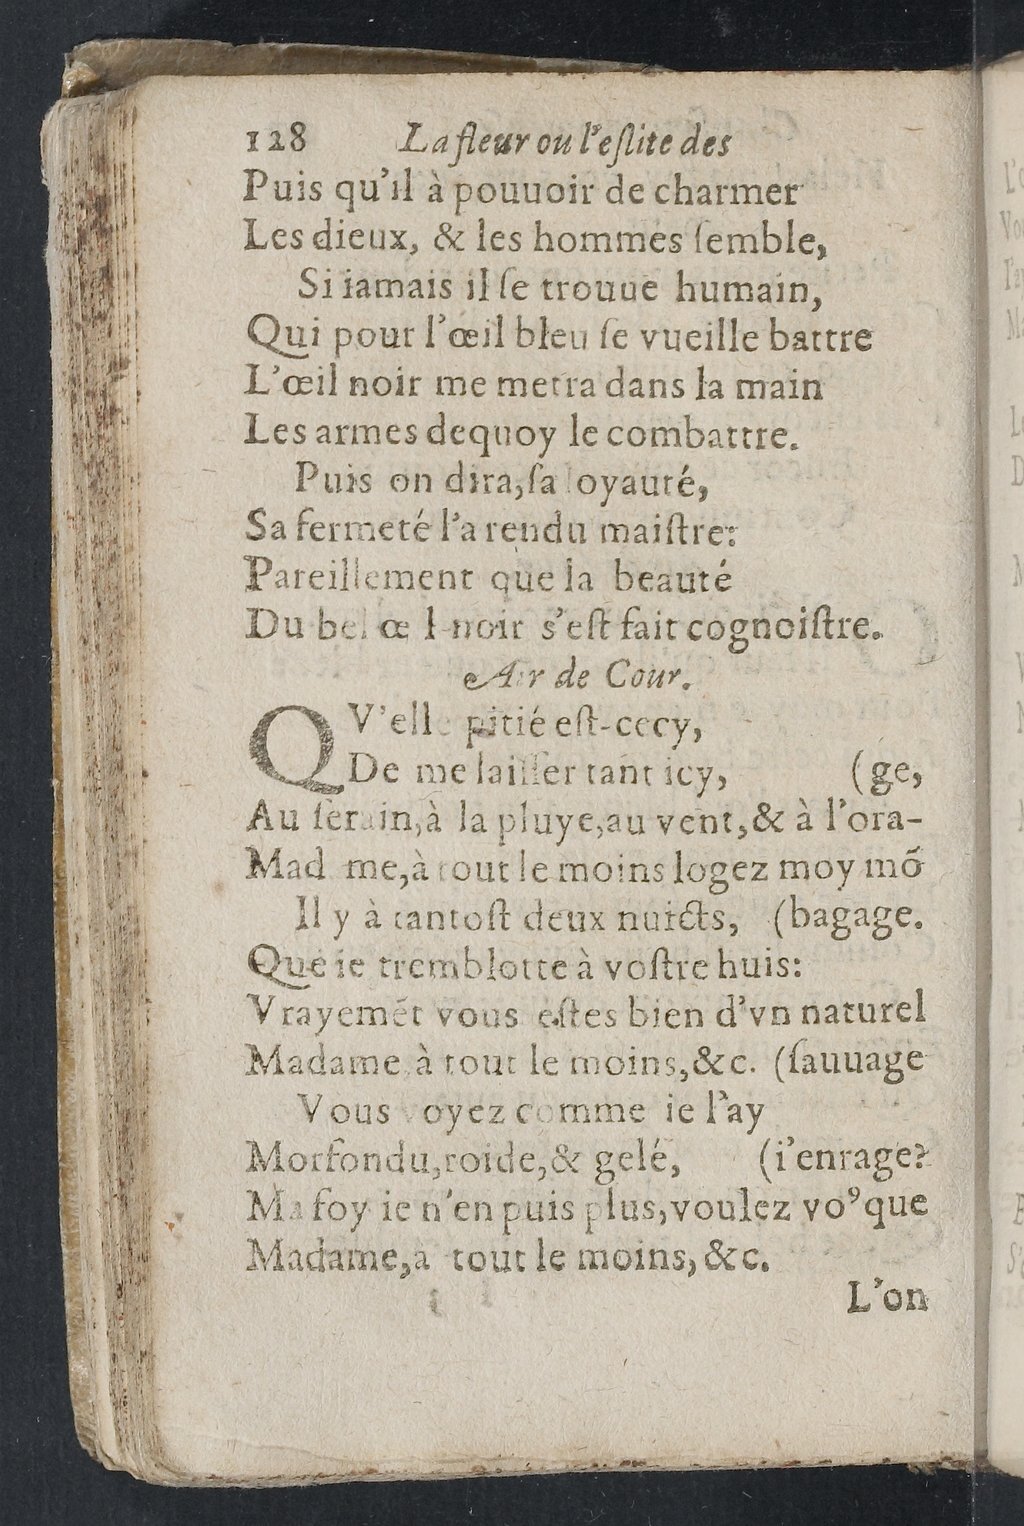 128 La fleur ou l'eſlite des
Puis qu'il à pouuoir de charmer
Les dieux, & les hommes ſemble,
Si iamais il ſe trouue humain,
Qui pour l'œil bleu ſe vueille battre
L'œil noir me metra dans la main
Les armes dequoy le combattre.
Puis on dira, ſa loyauté,
Sa fermeté l'a rendu maiſtre:
Pareillement que la beauté
Du bel œ l noir s'eſt fait cognoiſtre.
Air de Cour.
QV'elle pitié eſt-cecy,
De me laiſſer tant icy, (ge,
Au ſerain, à la pluye, au vent, & à l'ora-
Mad me, à tout le moins logez moy mõ
Il y à tantoſt deux nuicts, (bagage.
Que ie tremblotte à voſtre huis:
Vrayemẽt vous eſtes bien d'vn naturel
Madame à tout le moins, &c. (ſauuage
Vous voyez comme ie l'ay
Morfondu, roide, & gelé, (i'enrage?
Ma foy ie n'en puis plus, voulez voꝰ que
Madame, a tout le moins, &c.
L'on